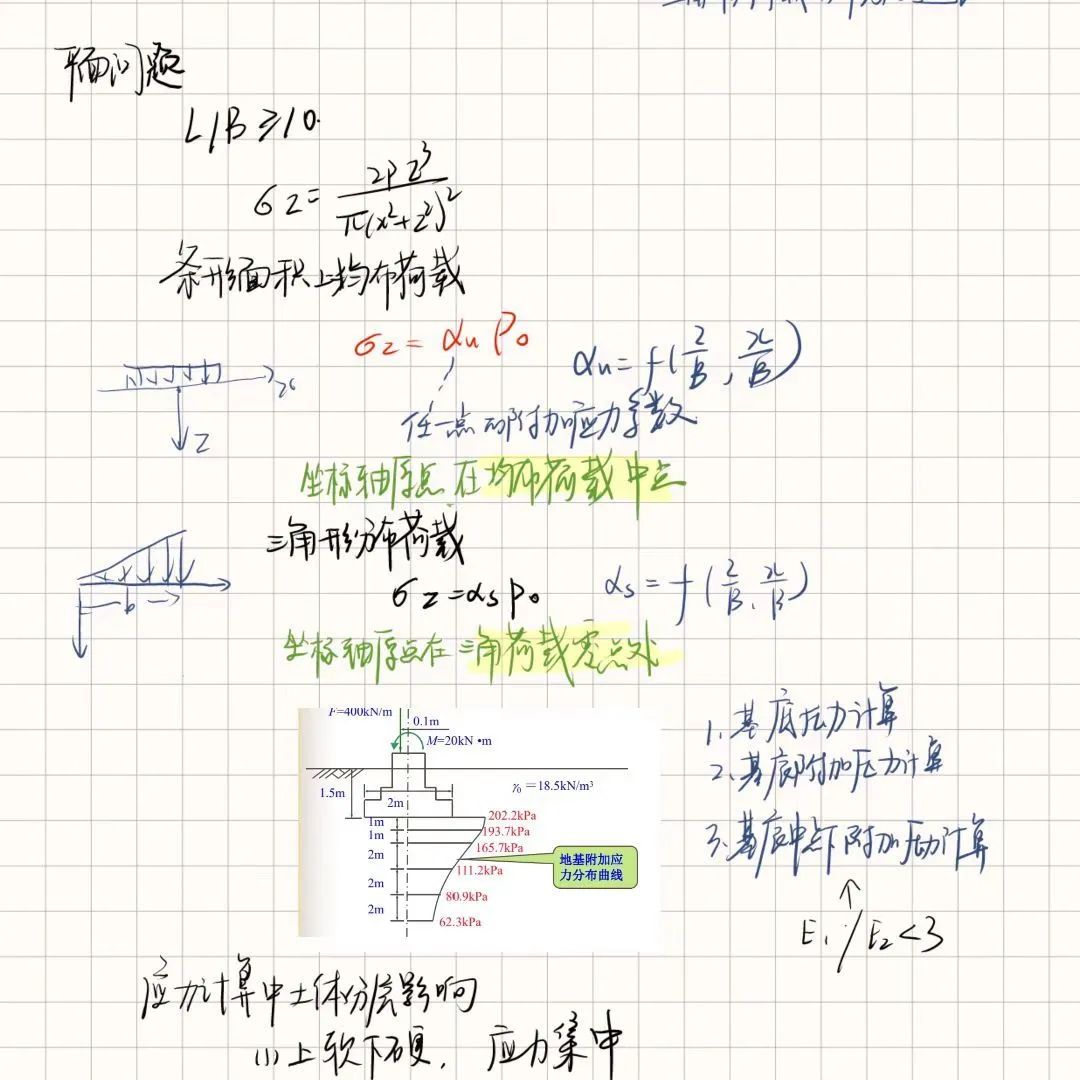 平面问题
L/B≥10.
σz=2pz³/π(x²+z²)²
条形面积上均布荷载
σz=αuP₀
αu=f(z/B,x/B)
x
z
任一点的附加应力系数
坐标轴原点在均布荷载中点
三角形分布荷载
σz=αsp₀
αs=f(z/B、x/B)
b
坐标轴原点在三角荷载零点处
F=400kN/m
0.1m
M=20kN•m
1.5m
γ₀=18.5kN/m³
2m
1m
202.2kPa
1m
193.7kPa
2m
165.7kPa
地基附加应
力分布曲线
111.2kPa
2m
80.9kPa
2m
62.3kPa
1、基底压力计算
2、基底附加压力计算
3、基底中点下附加应力计算
E₁/E₂<3
应力计算中土体分层影响
(1)上软下硬，应力集中